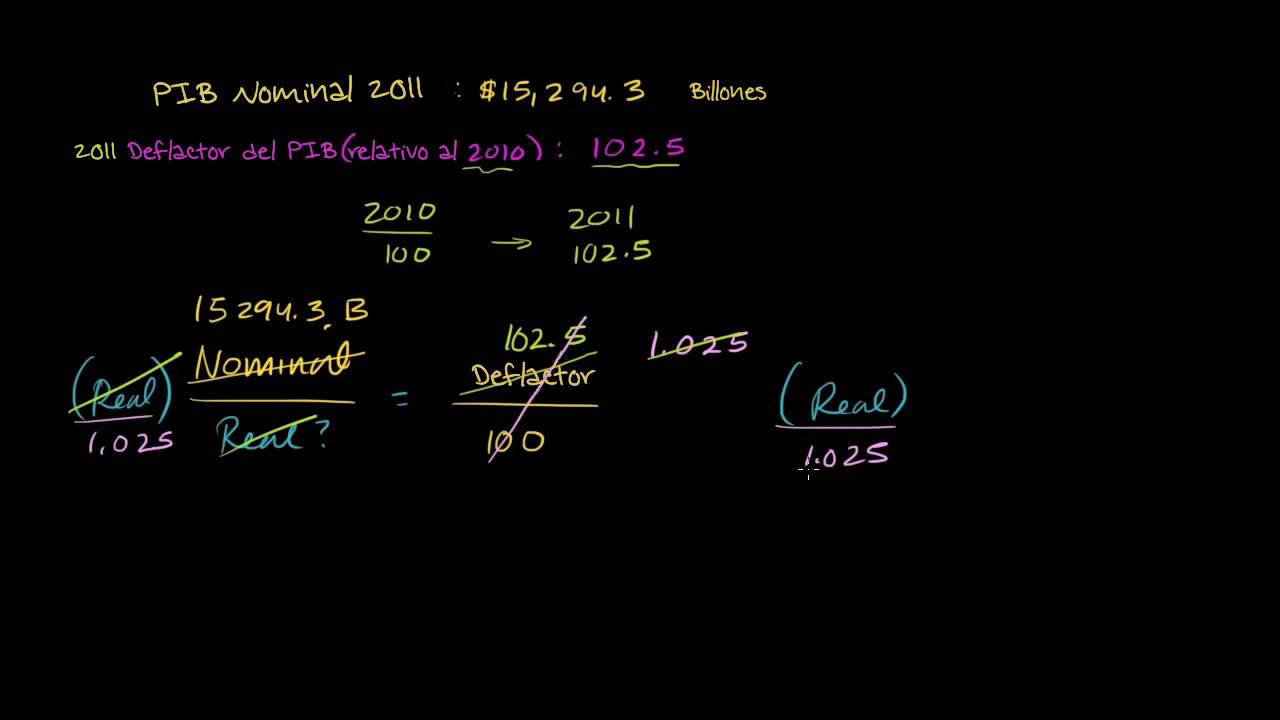 PIB Nominal 2011 : $15,294.3 Billones
2011 Deflactor del PIB (relativo al 2010) : 102.5
2010 → 2011
100 102.5
15294.3 B
102.5 1.025
(Real) Nominal = Deflactor (Real)
1.025 Real? 100 1.025